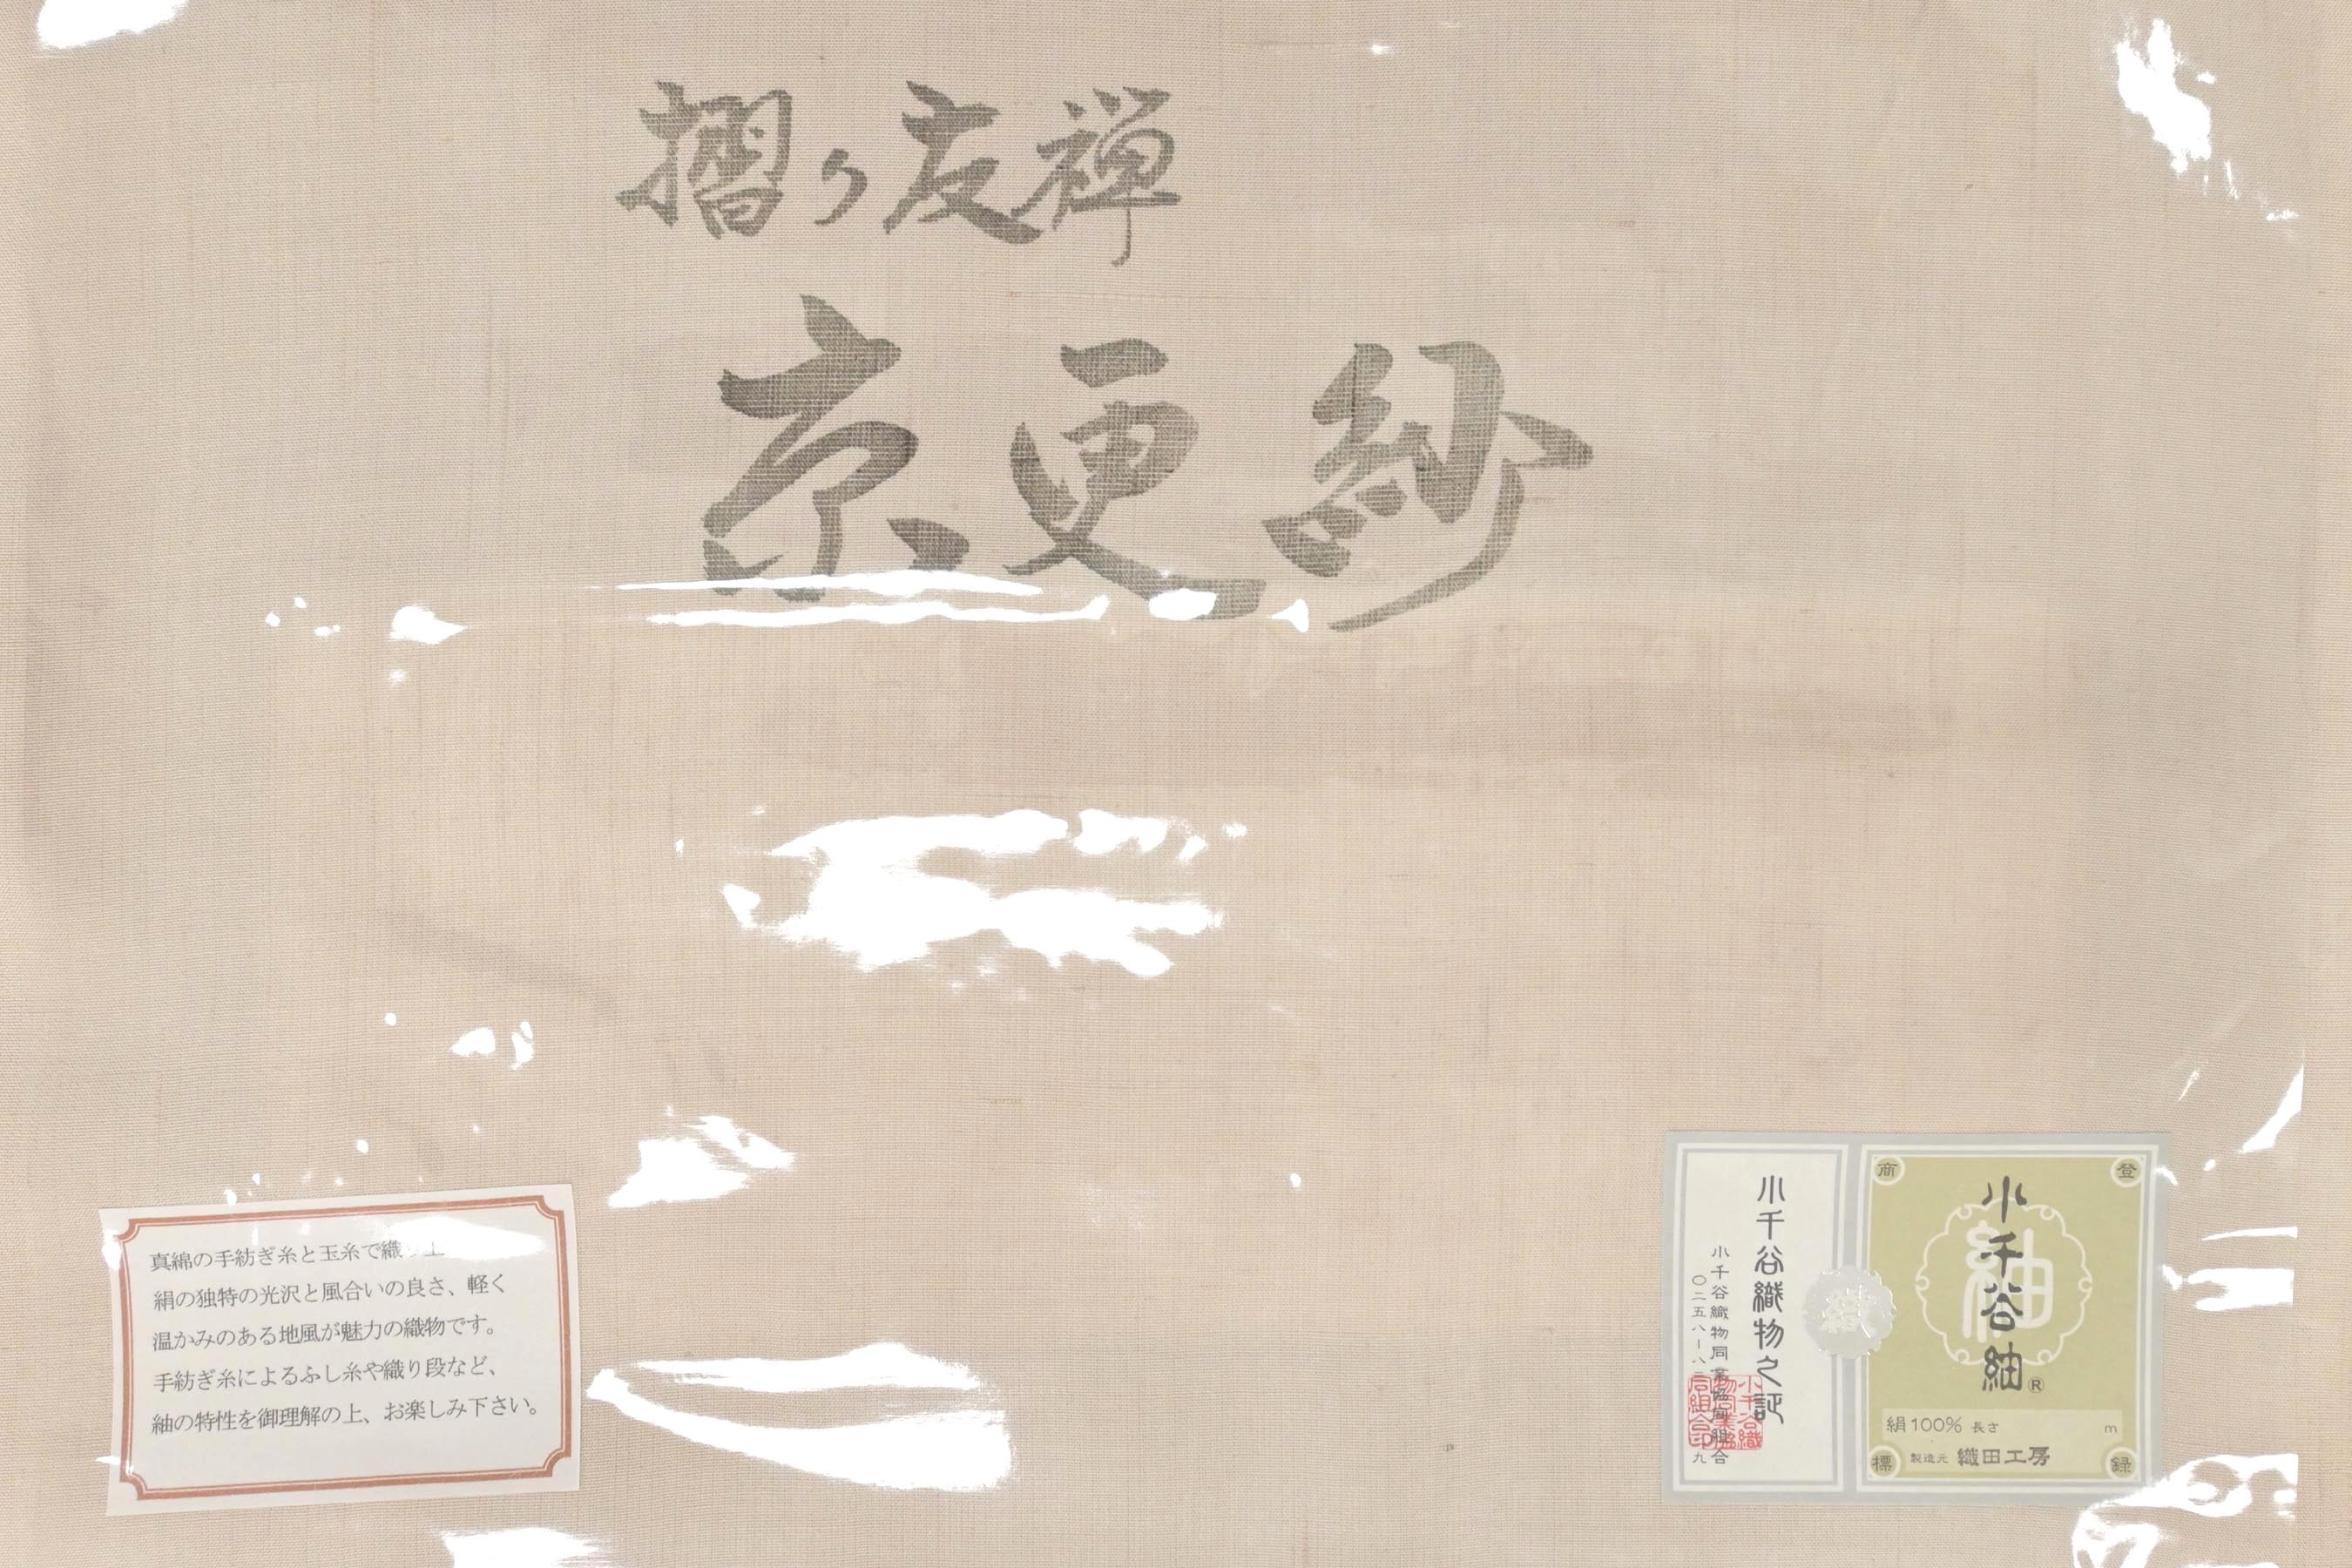 摺り友禅
京更紗
真綿の手紡ぎ糸と玉糸で織り上
絹の独特の光沢と風合いの良さ、軽く
温かみのある地風が魅力の織物です。
手紡ぎ糸によるふし糸や織り段など、
紬の特性を御理解の上、お楽しみ下さい。
登録商標
紬
小千谷紬®
絹100% 長さ m
製造元 織田工房
織
小千谷織物之証
小千谷織物同業協同組合
〇二五八ー八三
小千谷織物同業協同組合印